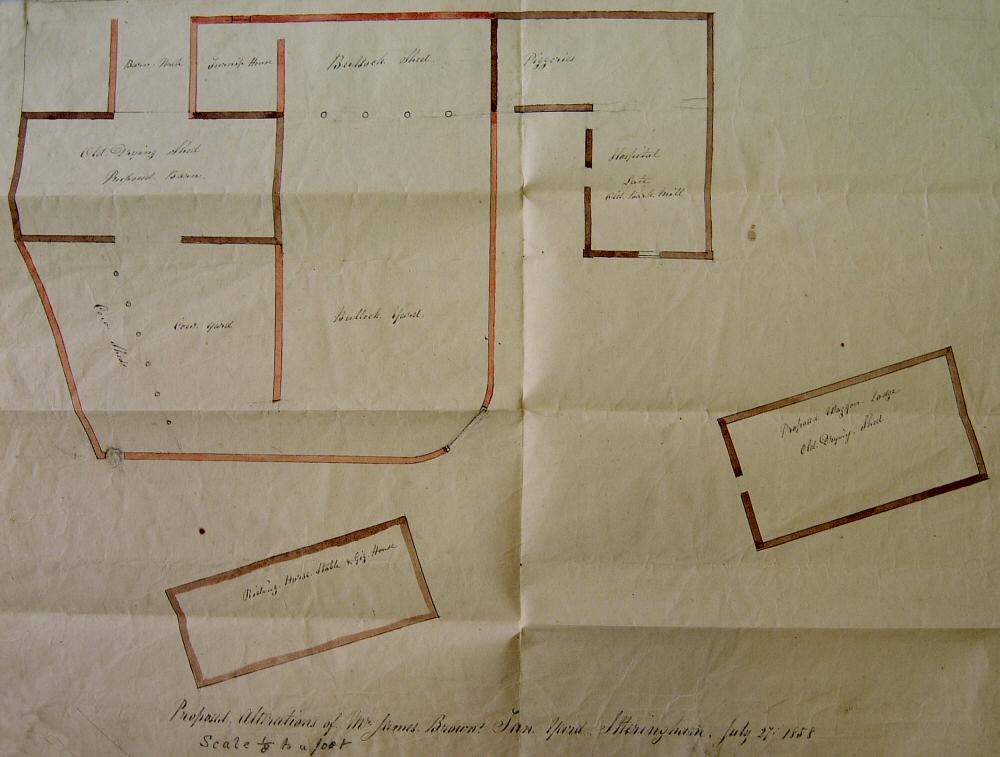 Barn
Turnip House
Bullock Shed
Piggeries
Old Drying Shed
Proposed Barn.
Hospital
Late
Old Bark Mill
Cow Shed
Cow Yard
Bullock Yard.
Proposed Waggon Lodge
Old Drying Shed
Riding Horse Stable & Gig House
Proposed Alterations of Mr James Brown's Tan Yard Itteringham, July 27. 1858
Scale ⅛ to a foot